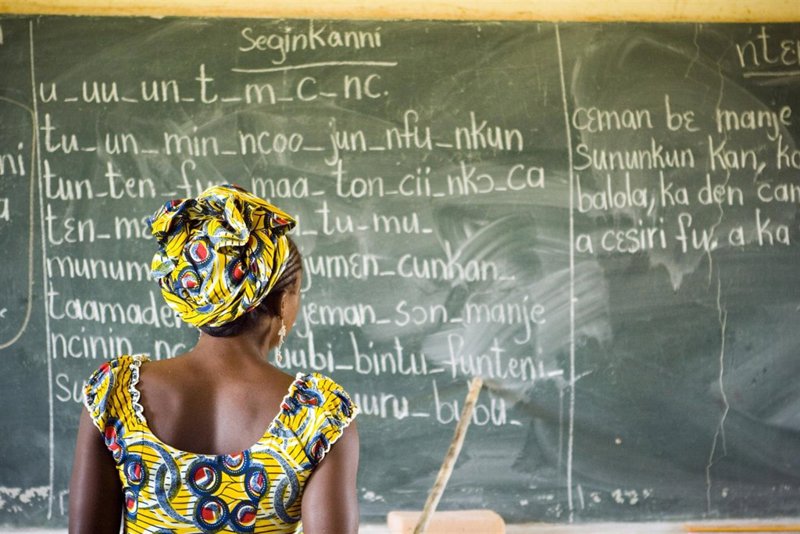 Seginkanni
u_uu_un_t_m_c_nc.
tu_un_min_ncoo_jun_nfu_nkun
tun_ten_fu_maa_ton_cii_nkɔ_ca
tɛn_ma _tu_mu_
munum jumɛn_cunhan_
taamaden jɛman_sɔn_manje
ncinin bubi_bintu_funteni_
su uru_bubu_
ntɛ
cɛman bɛ manje
Sununkun kan, ka
balola, ka den cam
a cɛsiri fu, a ka
ni
a